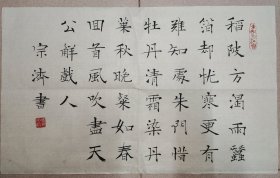 稻陂方渴雨蠶
箔却忧寒更有
難知處朱門惜
牡丹清霜染丹
葉秋晚粲如春
回首風吹盡天
公解戲人
宗濟書